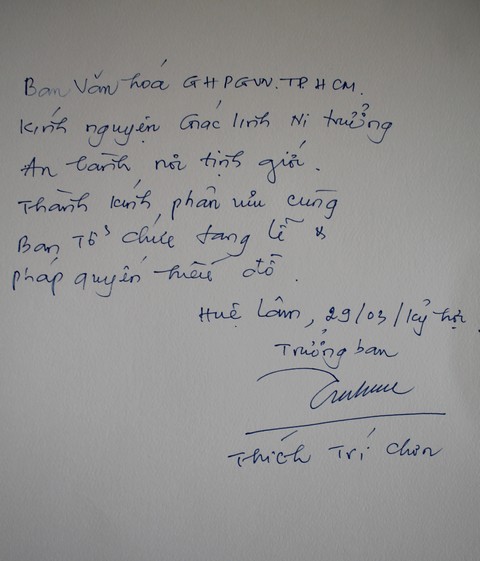 Ban Văn hoá GHPGVN.TP.HCM.
Kính nguyện Giác linh Ni trưởng
An lành nơi tịnh giới.
Thành kính phân ưu cùng
Ban Tổ chức tang lễ &
pháp quyến hiếu đồ.
Huệ Lâm, 29/03/Kỷ hợi.
Trưởng ban
Thích Trí Chơn